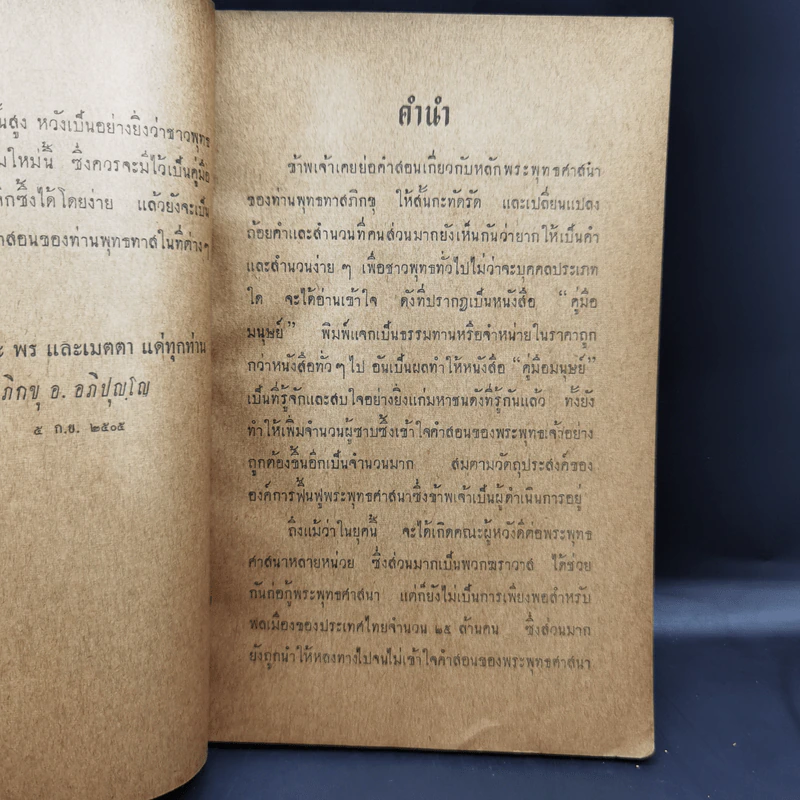 ั้นสูง หวังเป็นอย่างยิ่งว่าชาวพุทธ
มใหม่นี้ ซึ่งควรจะมีไว้เป็นคู่มือ
ึกซึ้งได้โดยง่าย แล้วยังจะเป็น
สอนของท่านพุทธทาสในที่ต่างๆ
ะ พร และเมตตา แด่ทุกท่าน
ภิกขุ อ. อภิปุญฺโญ
๕ ก.ย. ๒๕๐๕
คำนำ
ข้าพเจ้าเคยย่อคำสอนเกี่ยวกับหลักพระพุทธศาสนา
ของท่านพุทธทาสภิกขุ ให้สั้นกะทัดรัด และเปลี่ยนแปลง
ถ้อยคำและสำนวนที่คนส่วนมากยังเห็นกันว่ายากให้เป็นคำ
และสำนวนง่าย ๆ เพื่อชาวพุทธทั่วไปไม่ว่าจะบุคคลประเภท
ใด จะได้อ่านเข้าใจ ดังที่ปรากฏเป็นหนังสือ “คู่มือ
มนุษย์” พิมพ์แจกเป็นธรรมทานหรือจำหน่ายในราคาถูก
กว่าหนังสือทั่ว ๆ ไป อันเป็นผลทำให้หนังสือ “คู่มือมนุษย์”
เป็นที่รู้จักและสบใจอย่างยิ่งแก่มหาชนดังที่รู้กันแล้ว ทั้งยัง
ทำให้เพิ่มจำนวนผู้ซาบซึ้งเข้าใจคำสอนของพระพุทธเจ้าอย่าง
ถูกต้องขึ้นอีกเป็นจำนวนมาก สมตามวัตถุประสงค์ของ
องค์การฟื้นฟูพระพุทธศาสนาซึ่งข้าพเจ้าเป็นผู้ดำเนินการอยู่
ถึงแม้ว่าในยุคนี้ จะได้เกิดคณะผู้หวังดีต่อพระพุทธ
ศาสนาหลายหน่วย ซึ่งส่วนมากเป็นพวกฆราวาส ได้ช่วย
กันก่อกู้พระพุทธศาสนา แต่ก็ยังไม่เป็นการเพียงพอสำหรับ
พลเมืองของประเทศไทยจำนวน ๒๕ ล้านคน ซึ่งส่วนมาก
ยังถูกนำให้หลงทางไปจนไม่เข้าใจคำสอนของพระพุทธศาสนา